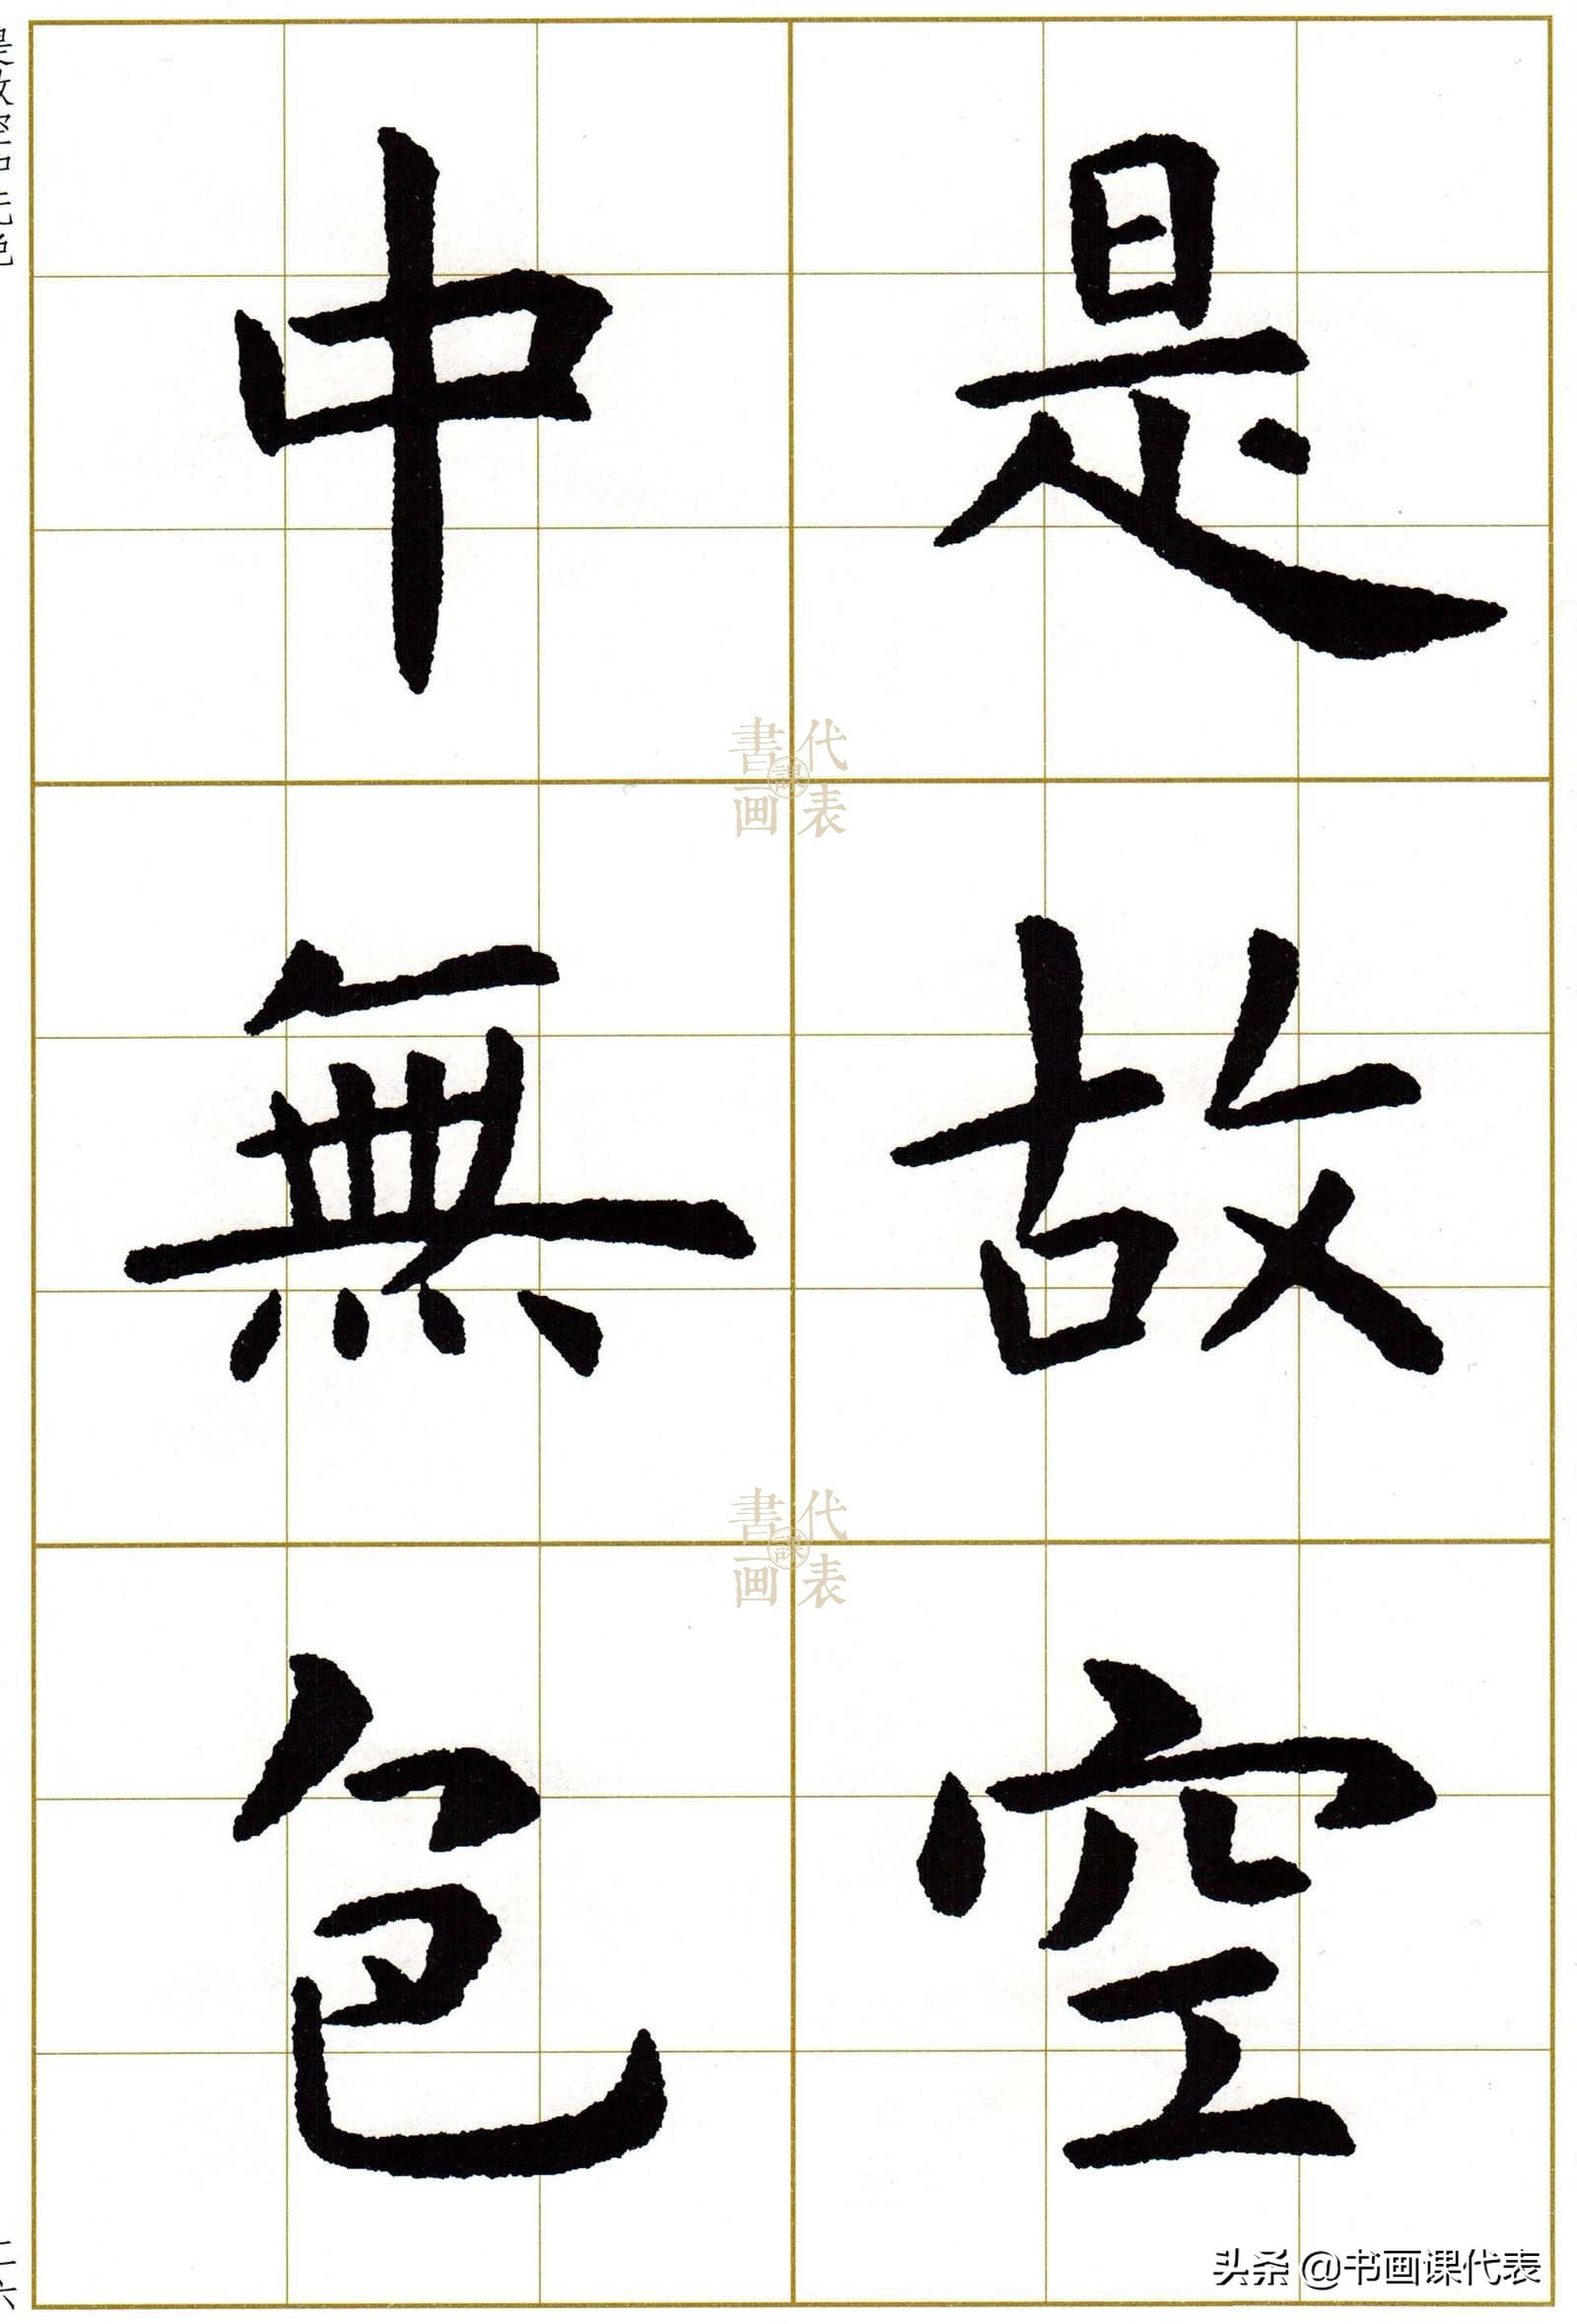 是故空
中無色
是故空中无色
二六
代表
課
書画
代表
課
書画
头条 @书画课代表